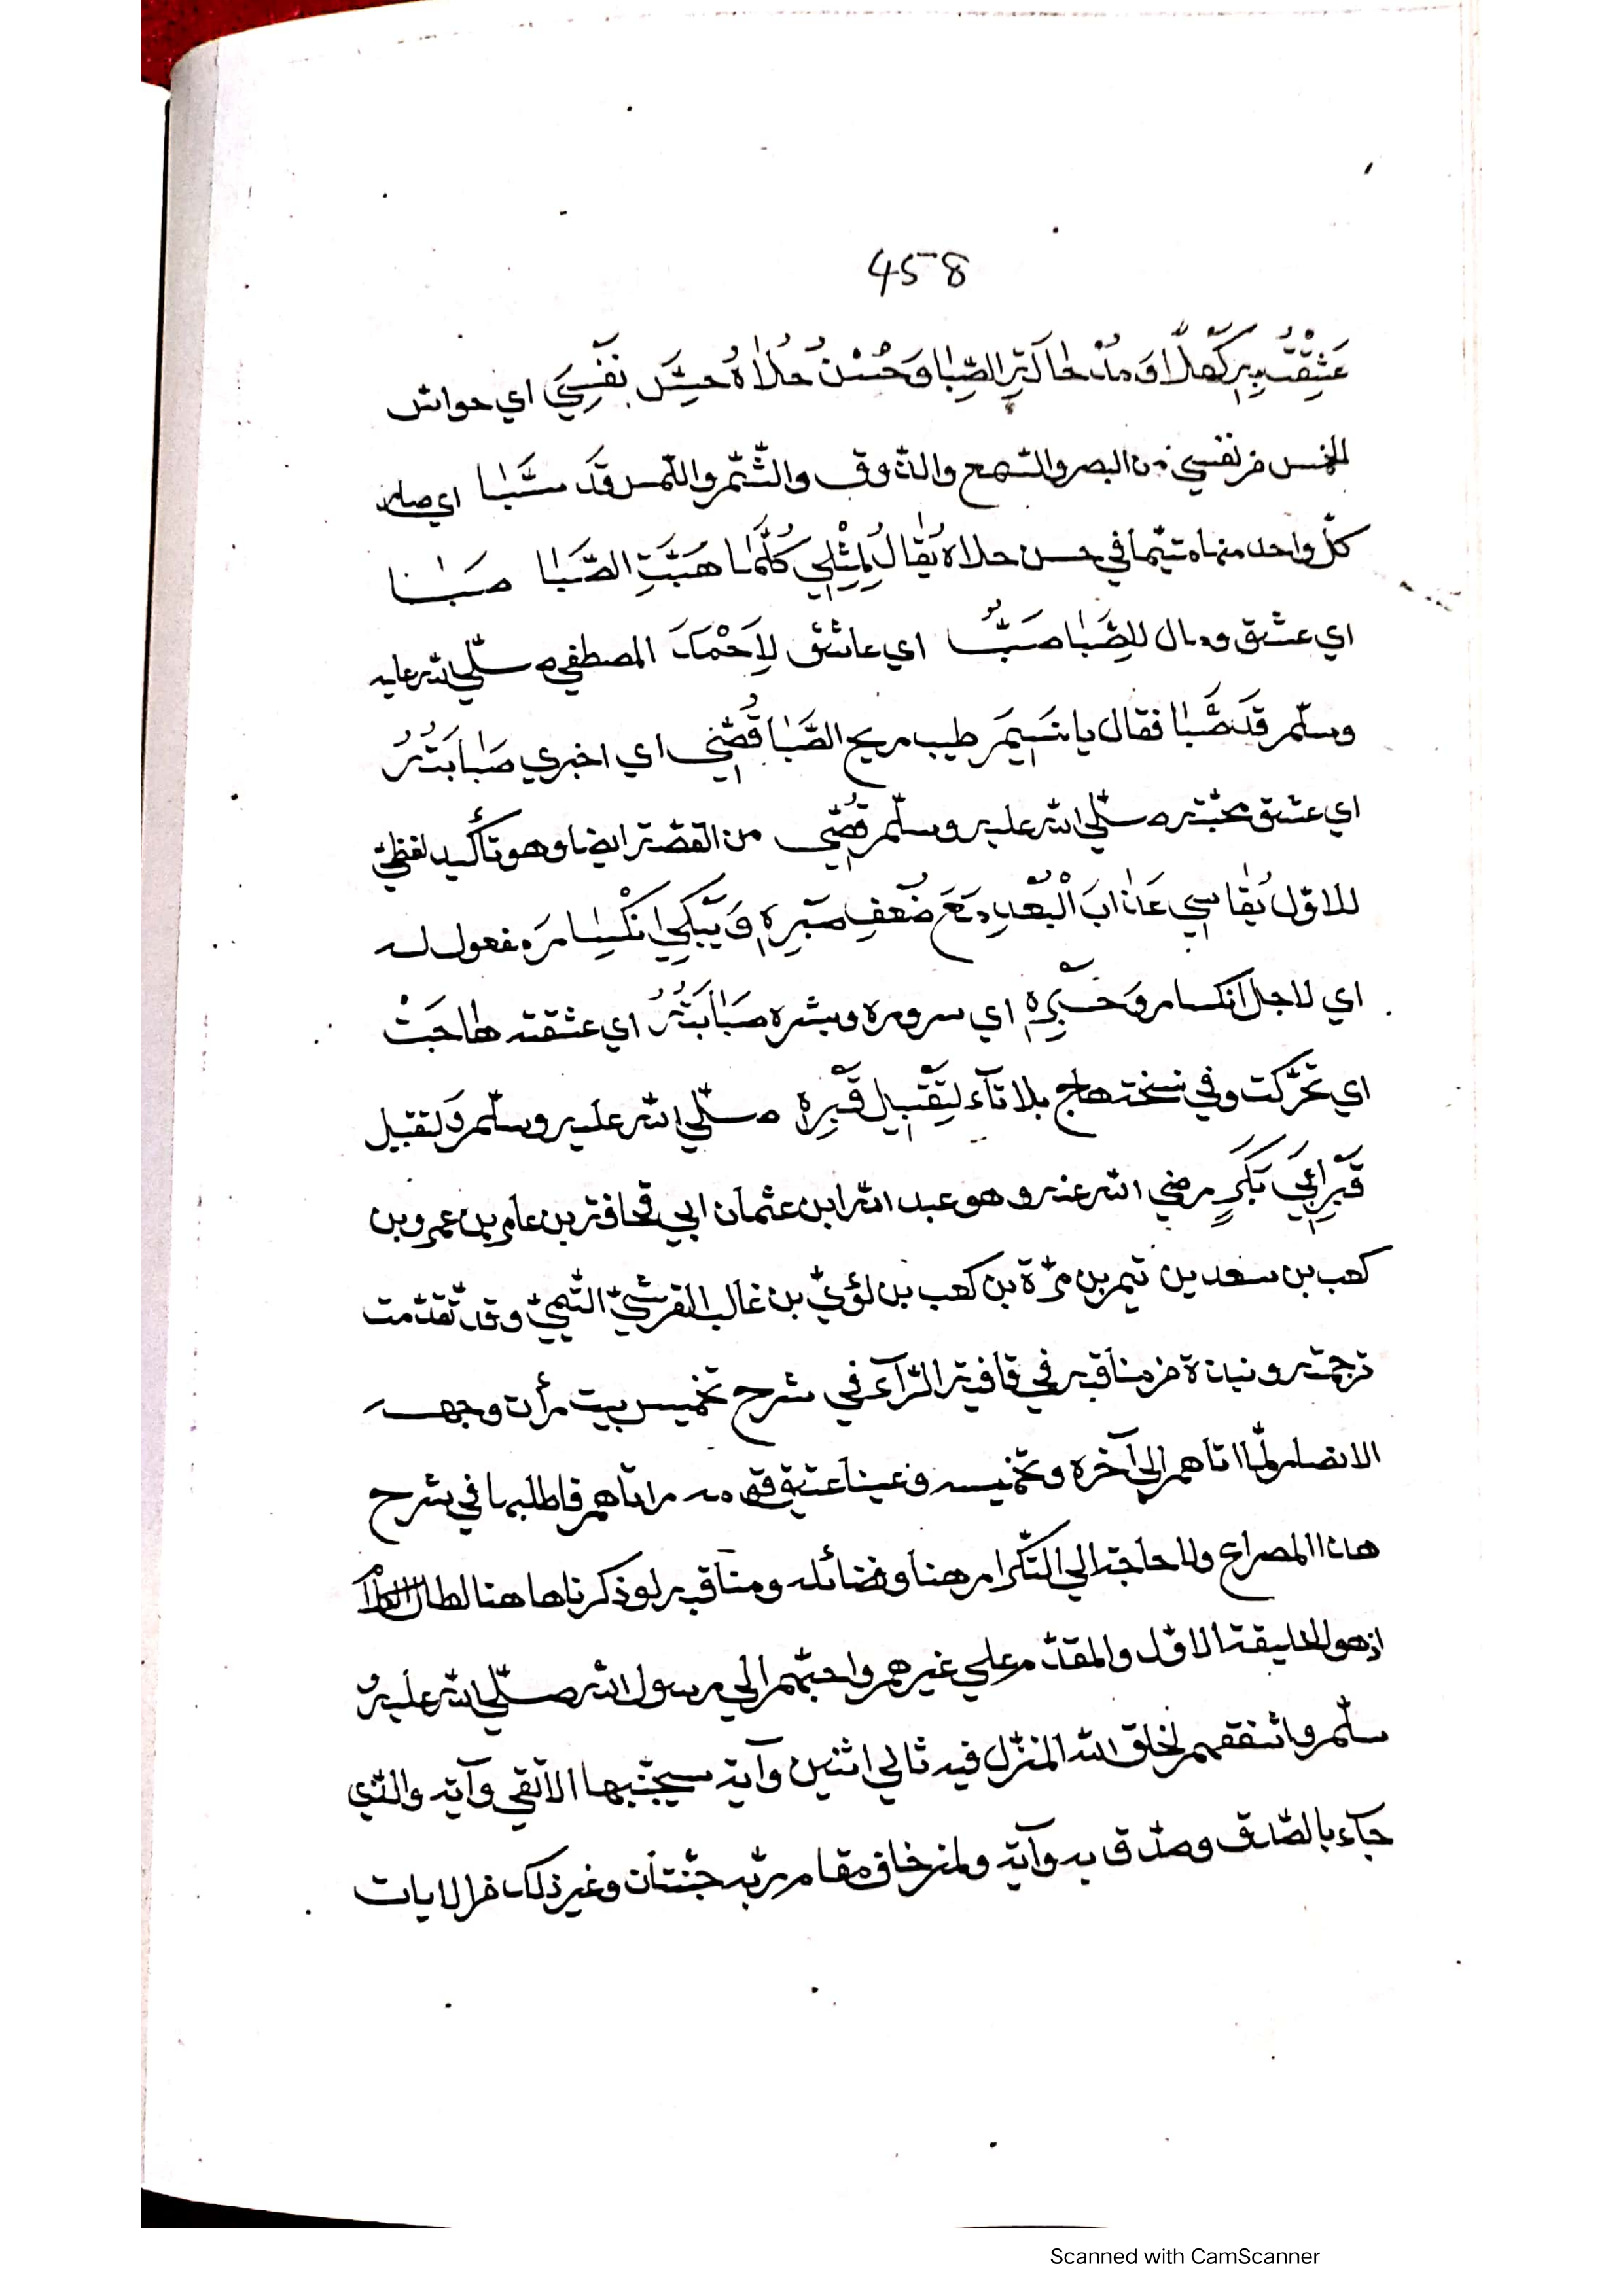 458
عَشِقْتُ بِهِ كَهْلًا وَمُذْ حَاكَهِ الصِّبَا وَحُسْنُ حُلَاهُ حِسَّ نَفْسِيَ اي حواس
الخمس من نفسي من البصر والسّمع والذّوق والشّمّ واللّمس قَدْ سَبَا اي صار
كلّ واحد منها متيّما في حسن حلاه يُقَالُ لِمِثْلِي كُلَّمَا هَبَّتِ الصَّبَا صَبَا
اي عشق ومال لِلصَّبَا صَبٌّ اي عاشق لِاَحْمَدَ المصطفي صلّي الله عليه
وسلّم قَدْ صَبَا فقال يا نَسِيمَ طيب ريح الصَّبَا قُصِّي اي اخبري صَبَابَتُهُ
اي عشق محبّته صلّي الله عليه وسلّم قُصِّي من القصّة ايضا وهو تأكيد لفظيّ
للاوّل يُقَاسِي عَذَابَ الْبُعْدِ مَعَ ضُعْفِ صَبْرِهِ وَيَبْكِي انْكِسَارَ مفعول له
اي لاجل انكسار وَحَبْرِهِ اي سروره وبشره صَبَابَتُهُ اي عشقته هَاجَتْ
اي تحرّكت وفي نسخة هاج بلا تآء لِتَقْبِيلِ قَبْرِهِ صلّي الله عليه وسلّم وَلتقبيل
قَبْرِ اَبِي بَكْرٍ رضي الله عنه وهو عبد الله ابن عثمان ابي قحافة بن عامر بن عمرو بن
كعب بن سعد بن تيم بن مرّة بن كعب بن لؤيّ بن غالب القرشيّ التّيميّ وقد تقدّمت
ترجمته ونبذة من مناقبه في قافية الرّآء في شرح تخميس بيت رأت وجهه
الانصار لمّا اتاهم الي آخره وتخميسه وعينا عتيق قومه مراتاهم فاطلبها في شرح
هذا المصراع ولا حاجة الي التّكرار هنا وفضائله ومناقبه لو ذكرناها هنا لطال الكلام
اذ هو الخليفة الاوّل والمقدّم علي غيرهم واحبّهم الي رسول الله صلّي الله عليه و
سلّم واشفقهم لخلق الله المنزّل فيه ثاني اثنين وآية سيجنّبها الاتقي وآية والّذي
جآء بالصّدق وصدّق به وآية ولمن خاف مقام ربّه جنّتان وغير ذلك من الايات
Scanned with CamScanner